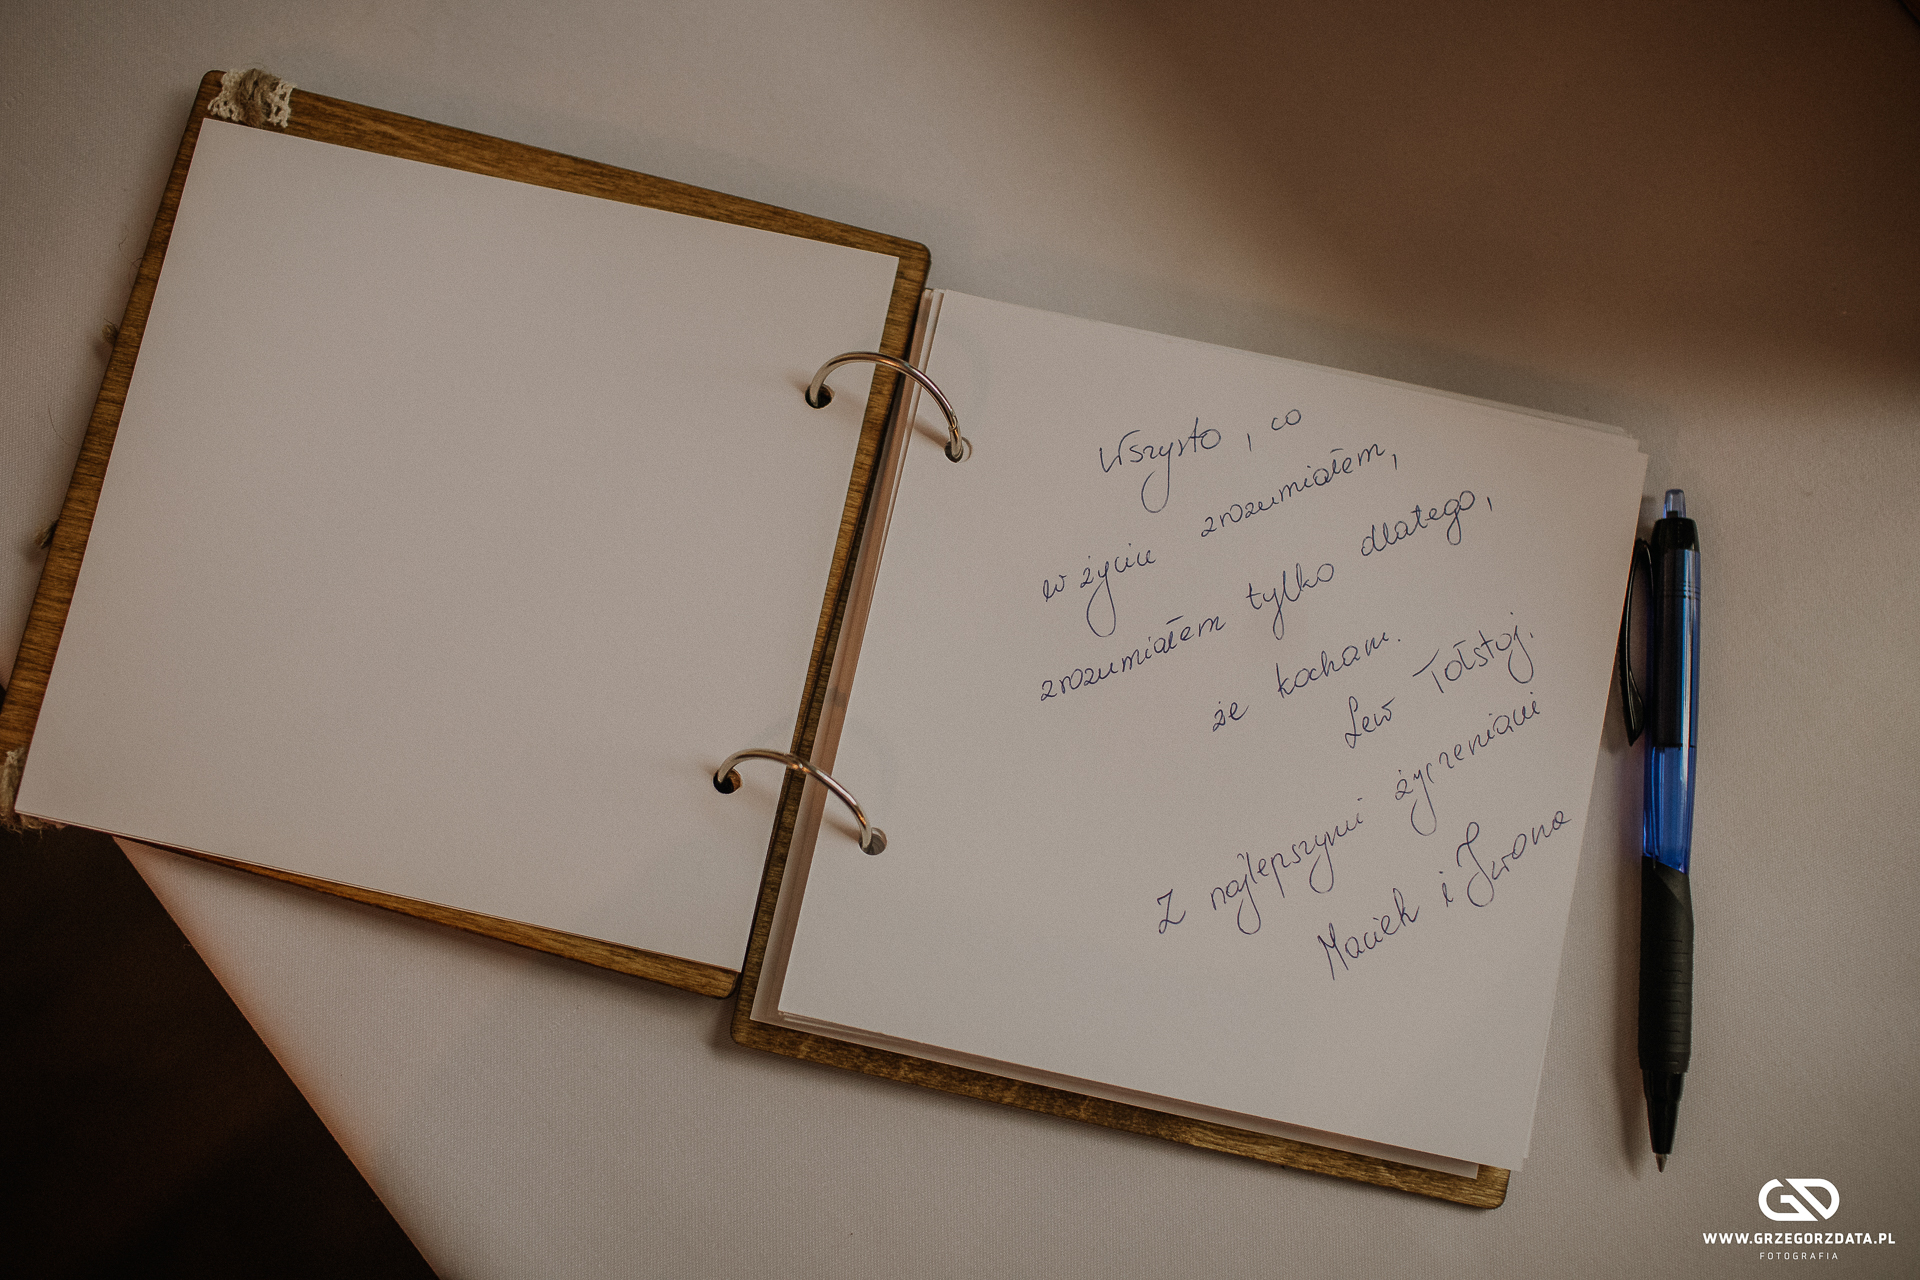 Wszysto, co
w życiu zrozumiałem,
zrozumiałem tylko dlatego,
że kocham.
Lew Tołstoj.
Z najlepszymi życzeniami
Maciek i Iwona
WWW.GRZEGORZDATA.PL
FOTOGRAFIA